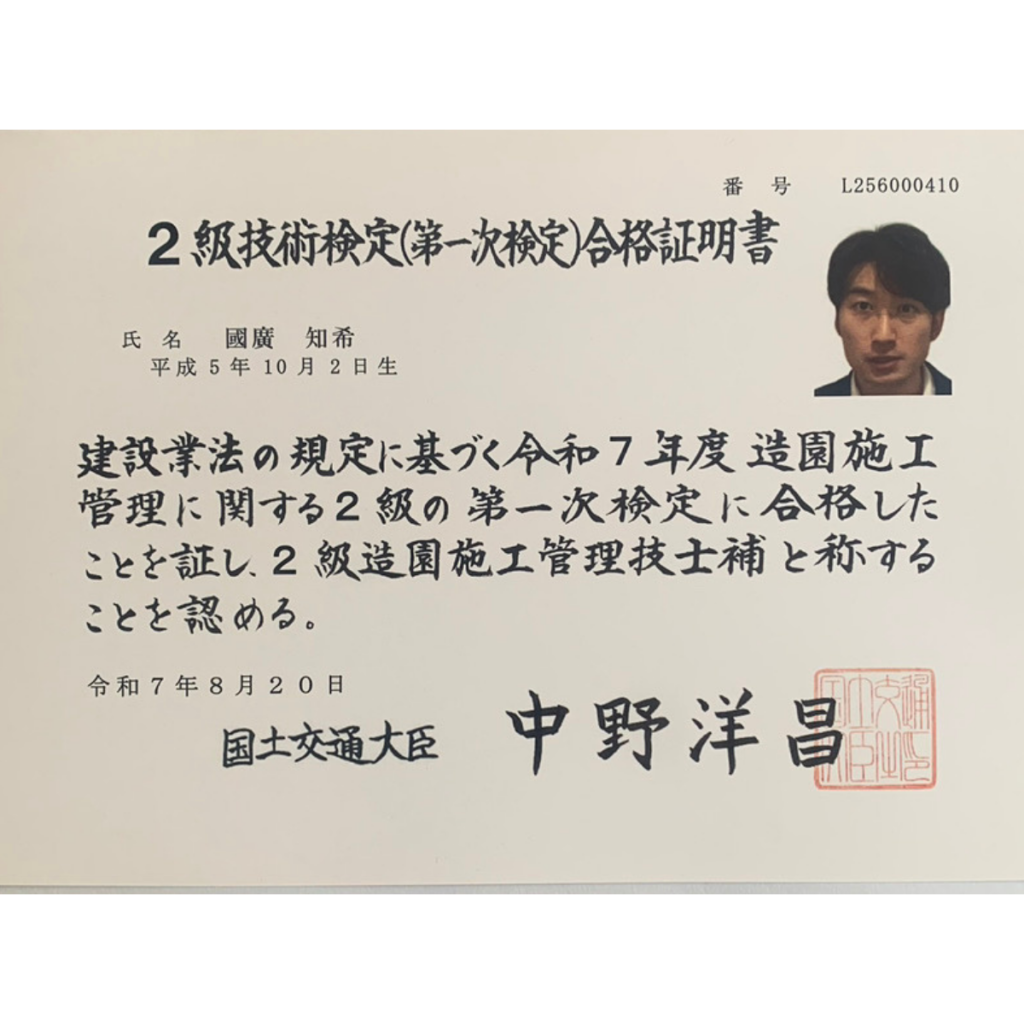 番 号 L256000410
2級技術検定(第一次検定)合格証明書
氏 名 國廣 知希
平成5年10月2日生
建設業法の規定に基づく令和7年度 造園施工
管理に関する2級の第一次検定に合格した
ことを証し、2級造園施工管理技士補と称する
ことを認める。
令和7年8月20日
国土交通大臣 中野洋昌